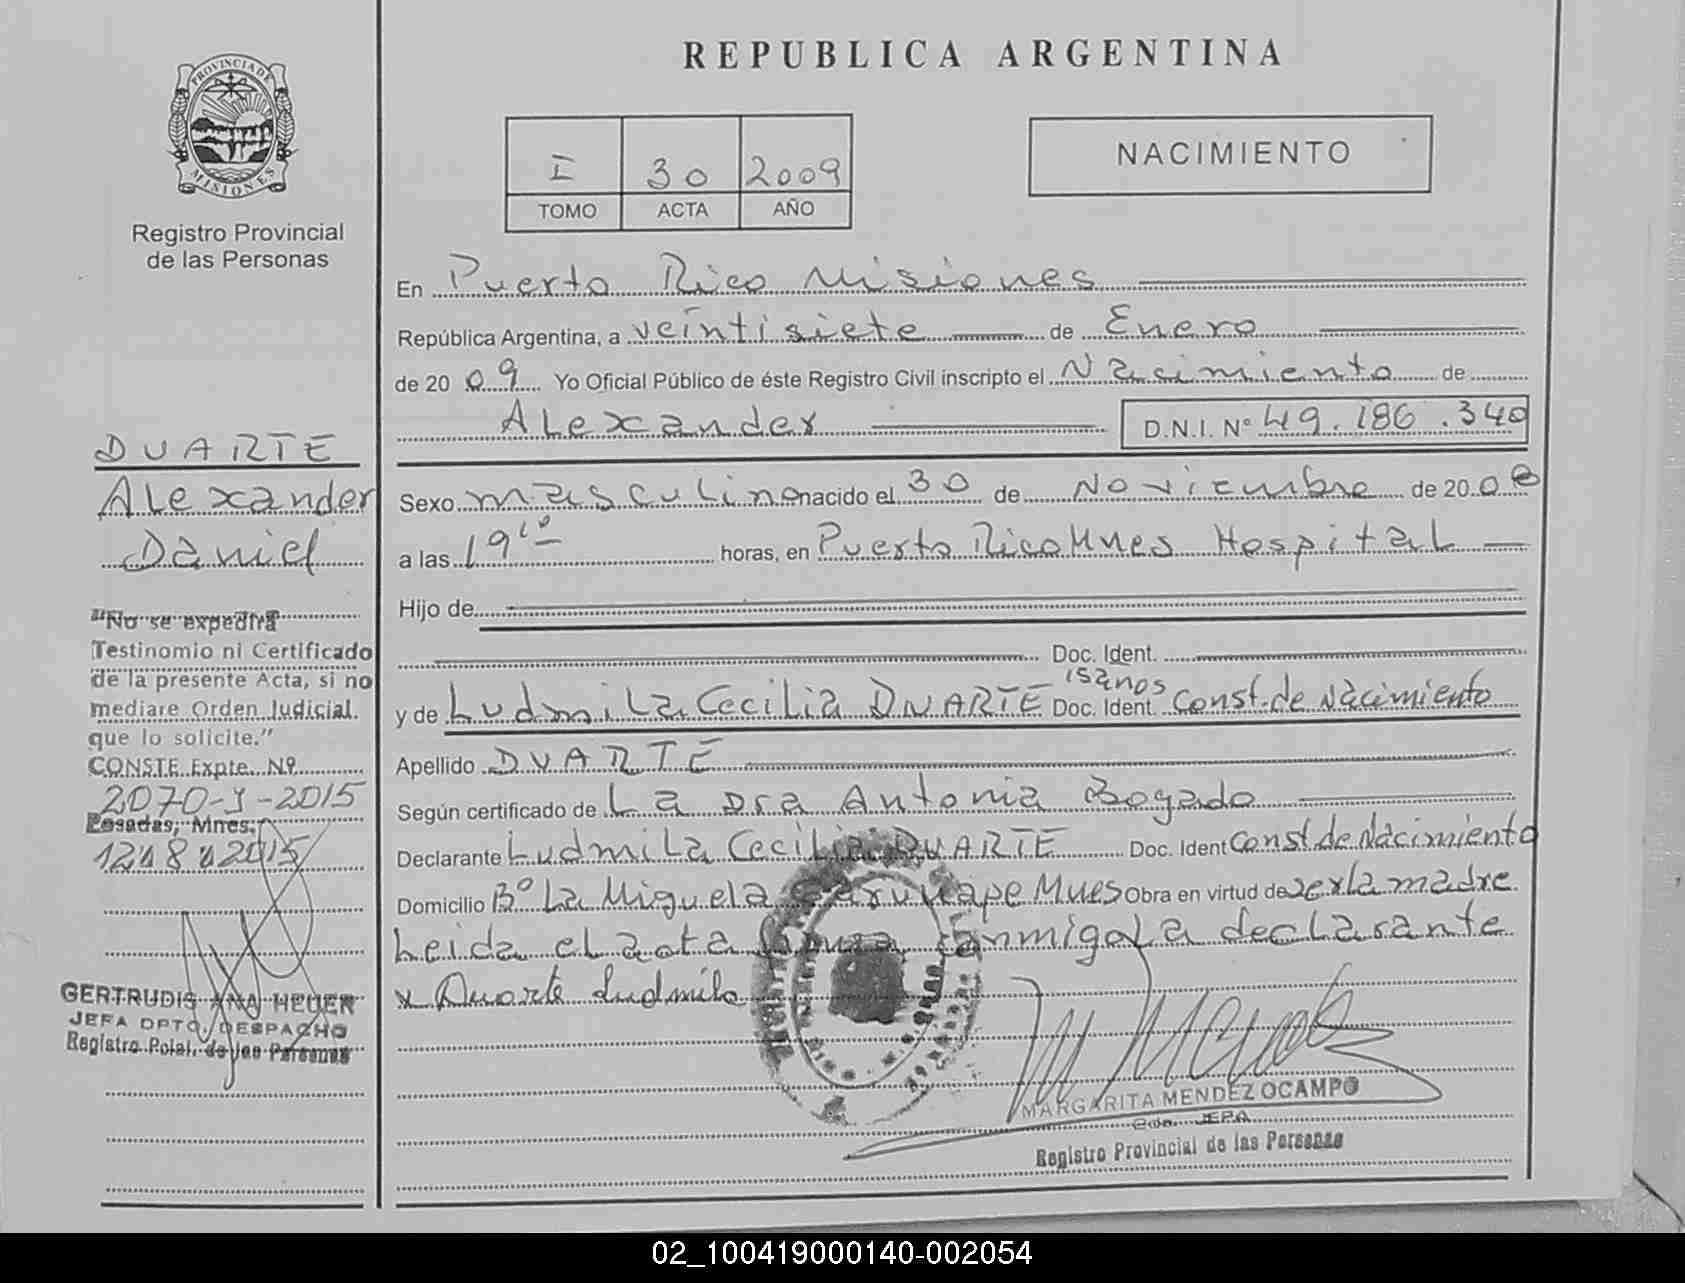 REPUBLICA ARGENTINA
PROVINCIA DE
MISIONES
Registro Provincial
de las Personas
I 30 2009
TOMO ACTA AÑO
NACIMIENTO
En Puerto Rico Misiones
República Argentina, a veintisiete de Enero
de 20 09 Yo Oficial Público de éste Registro Civil inscripto el Nacimiento de
Alexander D.N.I. Nº 49.186.340
DUARTE
Alexander
Daniel
Sexo masculino nacido el 30 de Noviembre de 20 08
a las 19 10 horas, en Puerto Rico Mnes Hospital
Hijo de
Doc. Ident.
15 años
y de Ludmila Cecilia DUARTE Doc. Ident. Const. de Nacimiento
Apellido DUARTE
Según certificado de La Dra Antonia Bogado
Declarante Ludmila Cecilia DUARTE Doc. Ident Const de Nacimiento
Domicilio Bº La Miguela Garuhape Mnes Obra en virtud de ser la madre
Leida el acta firma conmigo La declarante
x Duarte Ludmila
"No se expedirá
Testimonio ni Certificado
de la presente Acta, si no
mediare Orden Judicial
que lo solicite."
CONSTE Expte. Nº
2070-J-2015
Posadas, Mnes.
12 8 2015
GERTRUDIS ANA HEUER
JEFA DPTO. DESPACHO
Registro Pcial. de las Personas
MARGARITA MENDEZ OCAMPO
JEFA
Registro Provincial de las Personas
02_100419000140-002054